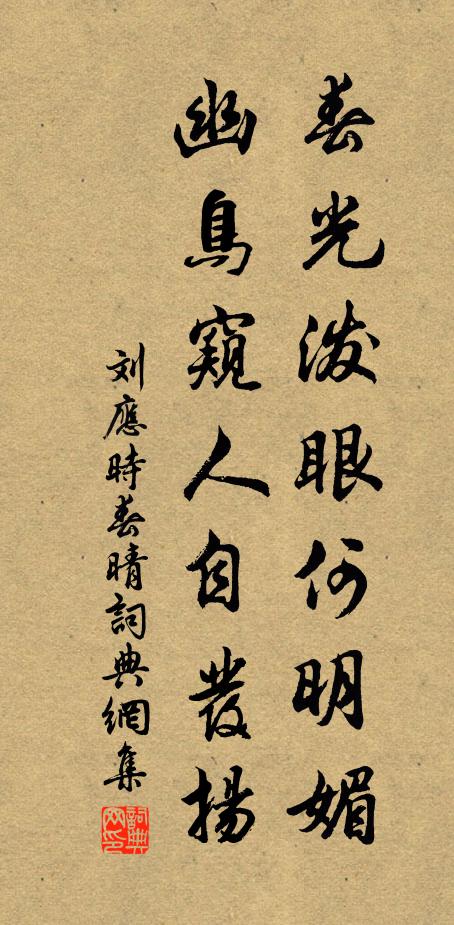 春光潑眼何明媚
幽鳥窺人自發揚
刘應時春晴詞典網集
詞典網印